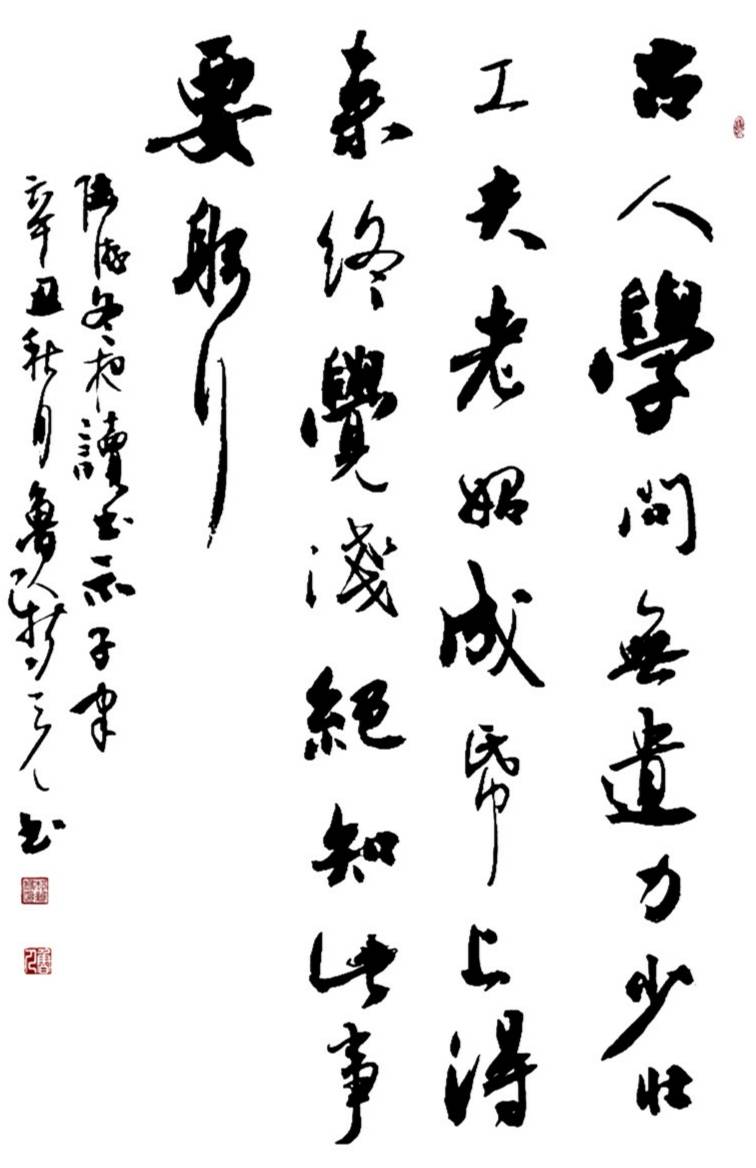 古人學問無遺力少壯
工夫老始成帋上得
来終覺淺絶知此事
要躬行
陸游冬夜讀书示子聿
辛丑秋月魯人书